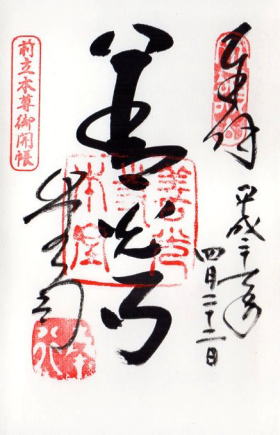 奉拝
平成二十一年
四月二十二日
善光寺
前立本尊御開帳